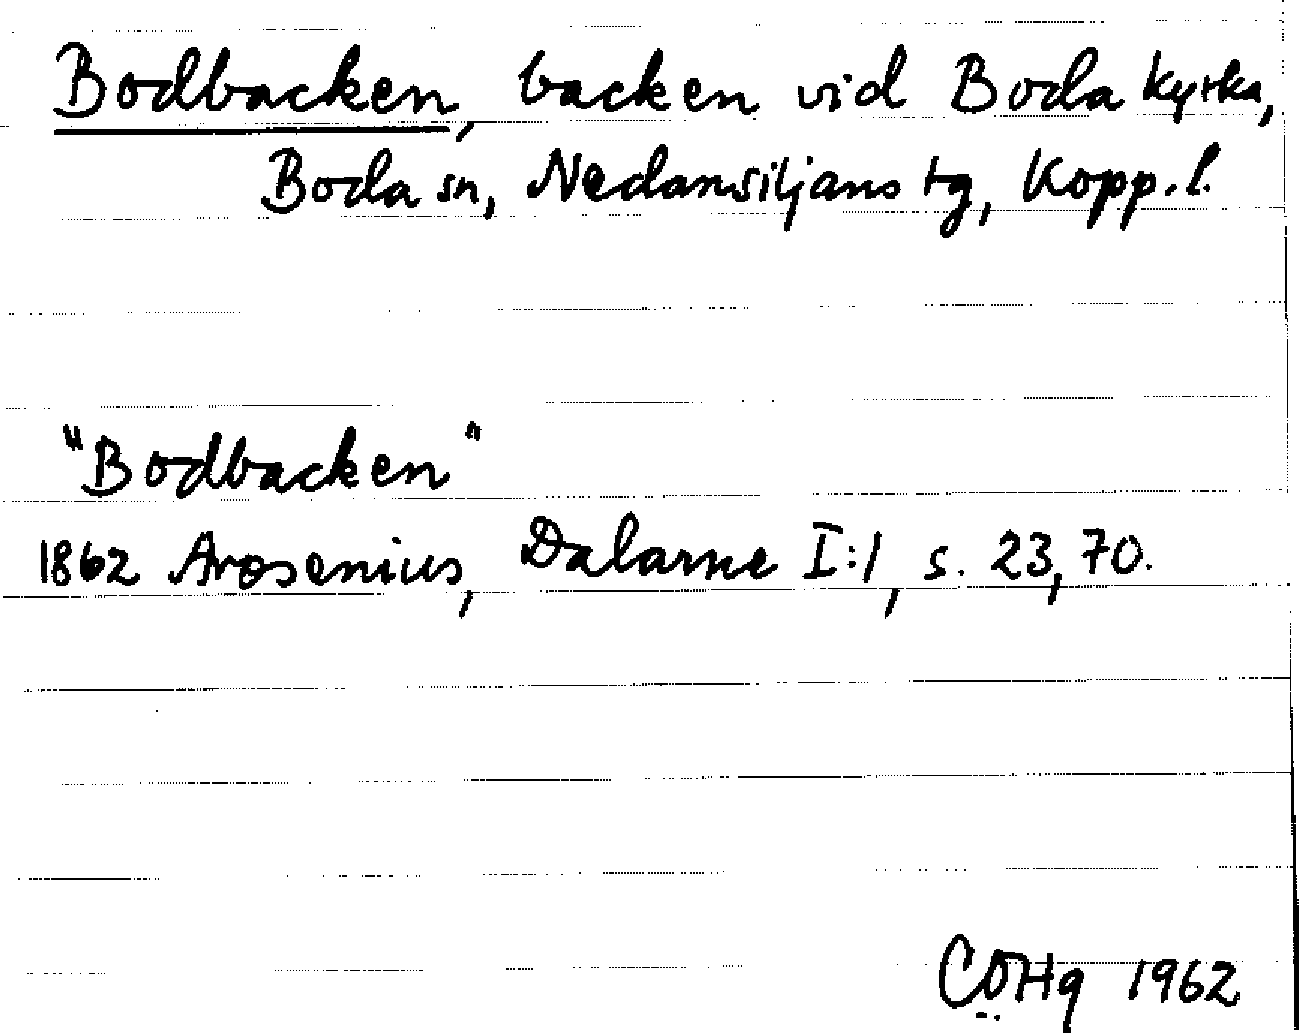 Bodbacken, backen vid Boda kyrka,
Boda sn, Nedansiljans tg, Kopp. l.
"Bodbacken"
1862 Arosenius, Dalarne I:1, s. 23, 70.
COHg 1962